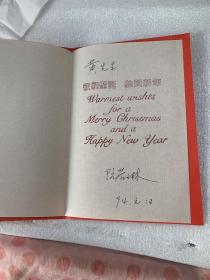 黄先生
恭祝聖誕 恭賀新年
Warmest wishes
for a
Merry Christmas
and a
Happy New Year
94.